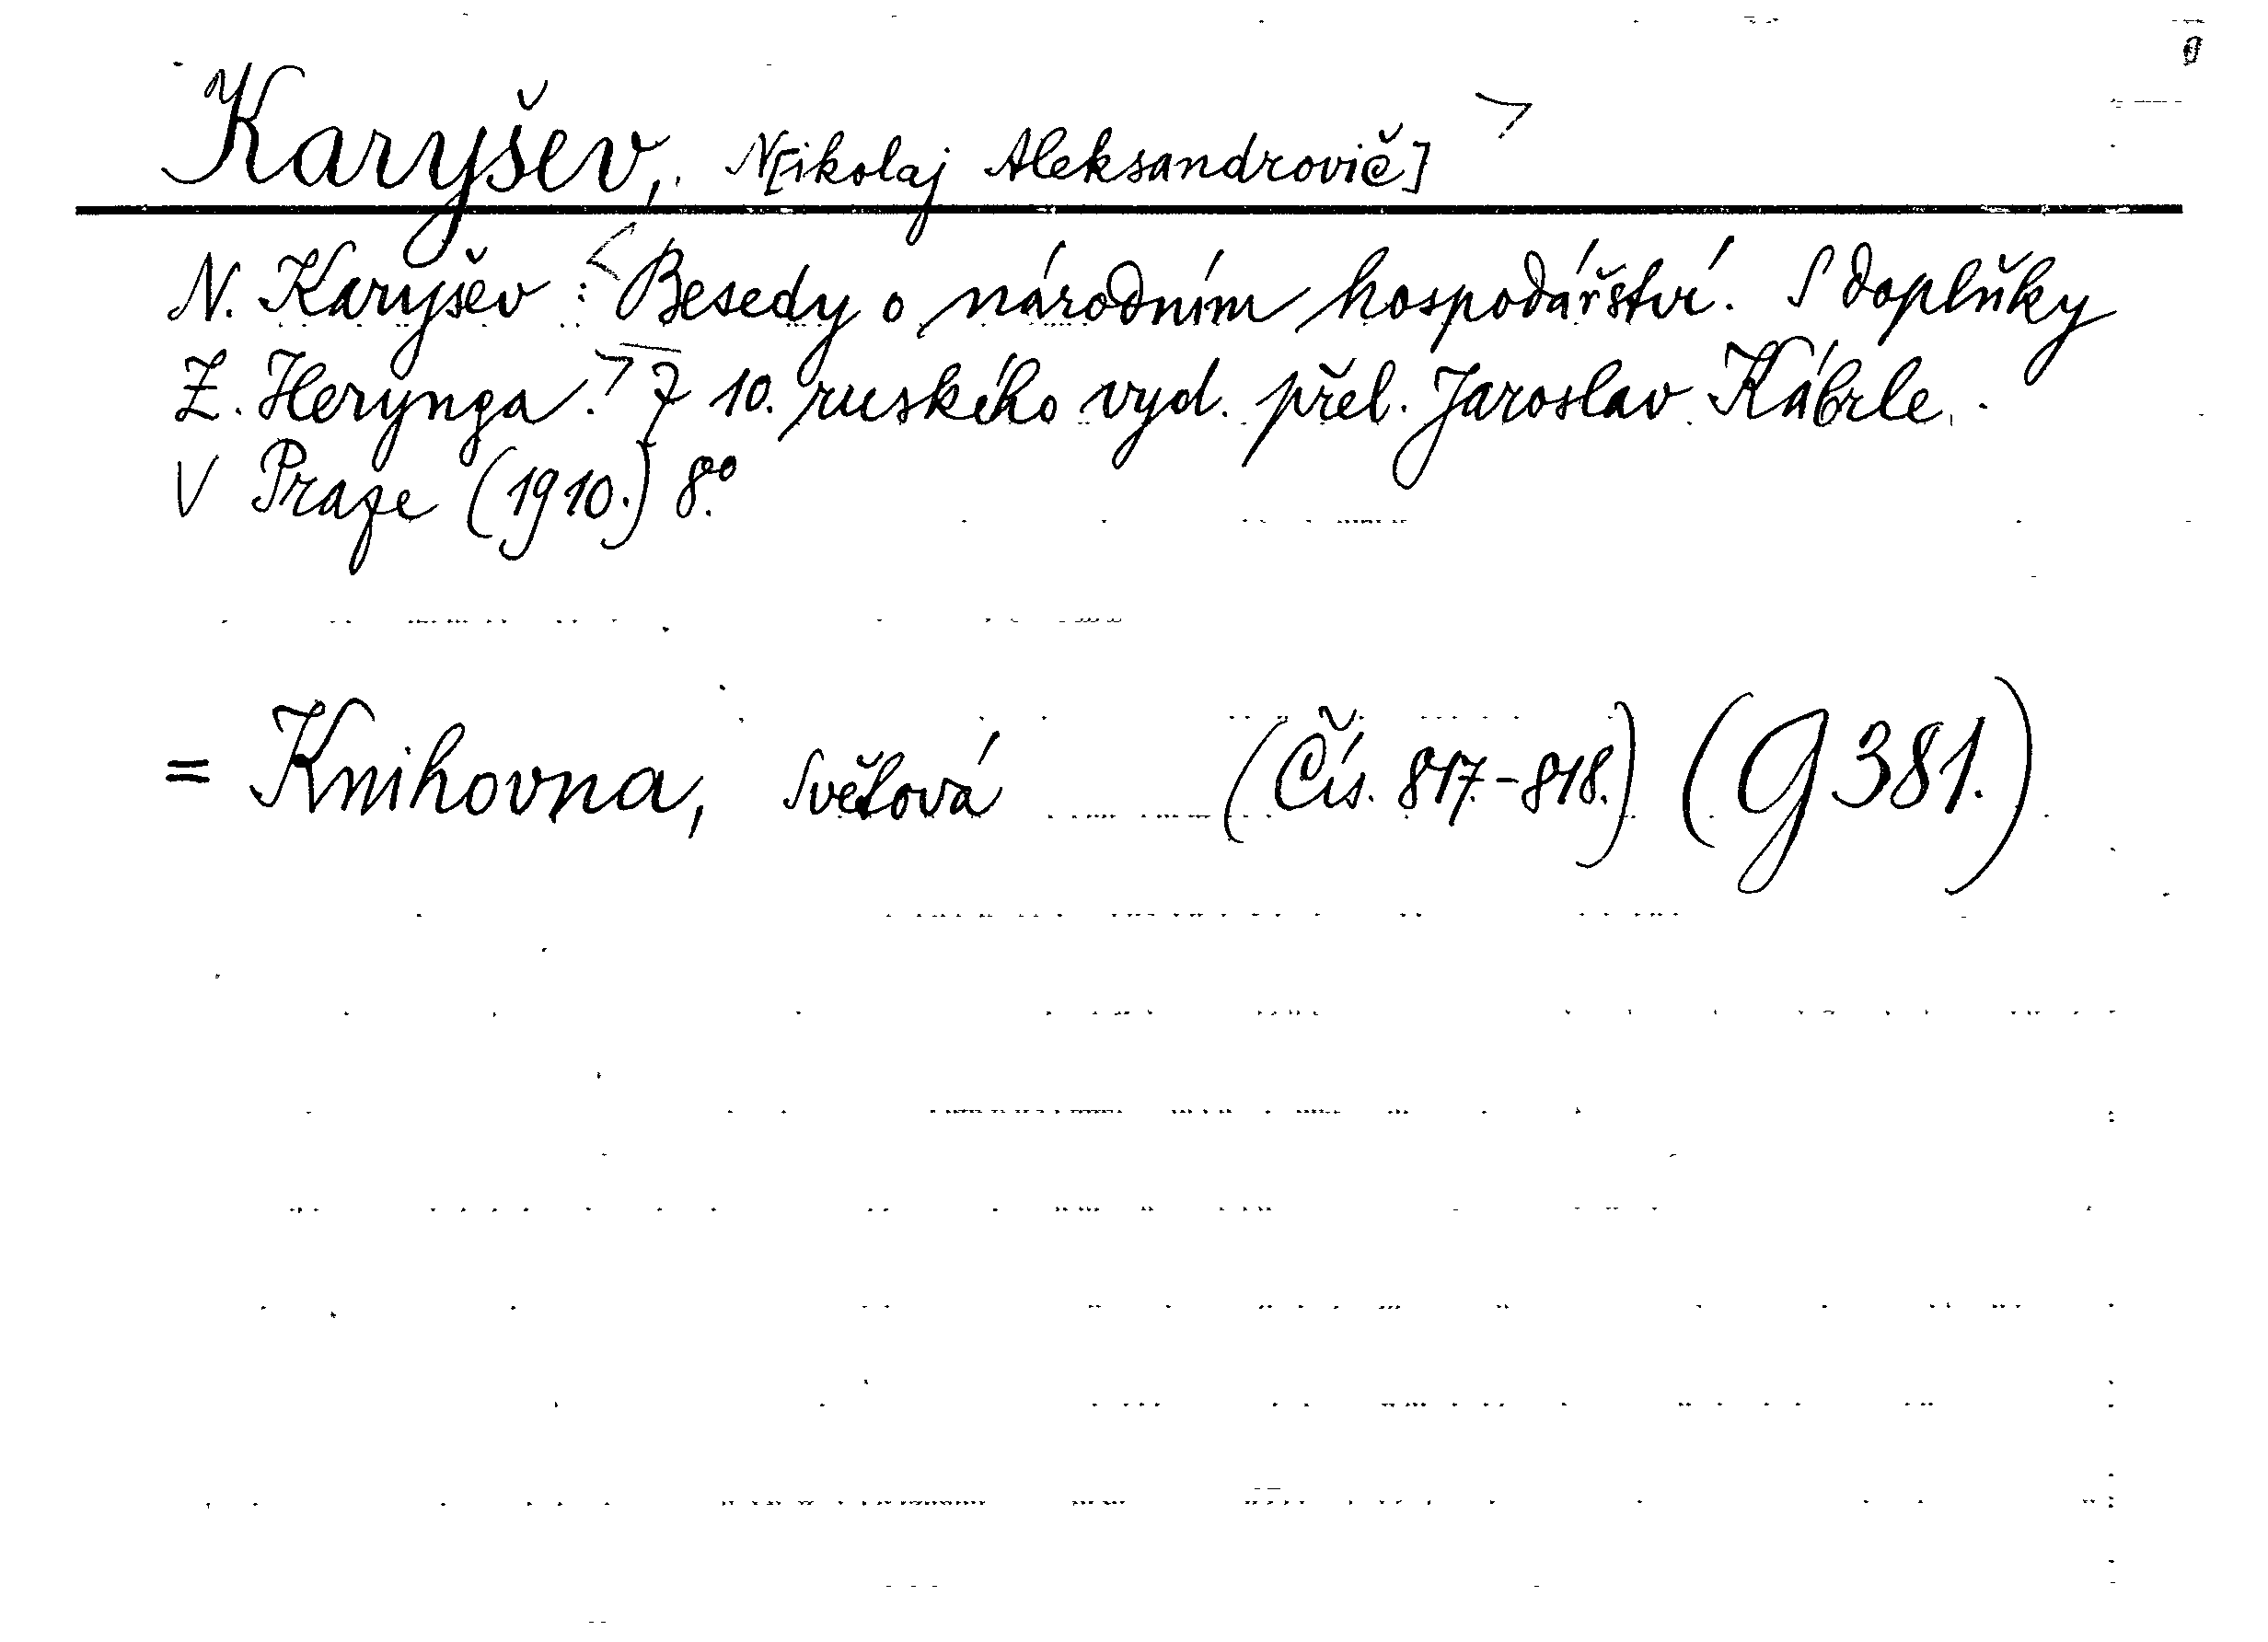 Karyšev, N[ikolaj Aleksandrovič]
N. Karyšev : Besedy o národním hospodářství. S doplňky
Z. Herynga. Z 10. ruského vyd. přel. Jaroslav Kábrle.
V Praze (1910.) 8º.
= Knihovna, Světová (Čís. 817.-818.) (G 381.)